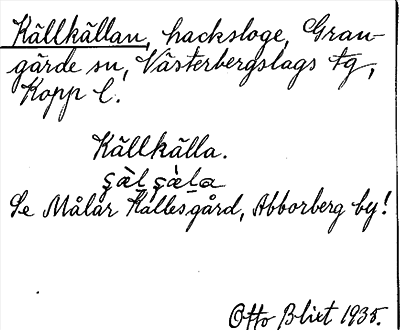 Källkällan, hacksloge, Gran-
gärde sn, Västerbergslags fg,
Kopp l.
Källkälla.
s̨ὰl̠s̨ὰl̠a
Se Målar Kalles gård, Abborberg by!
Otto Blixt 1935.